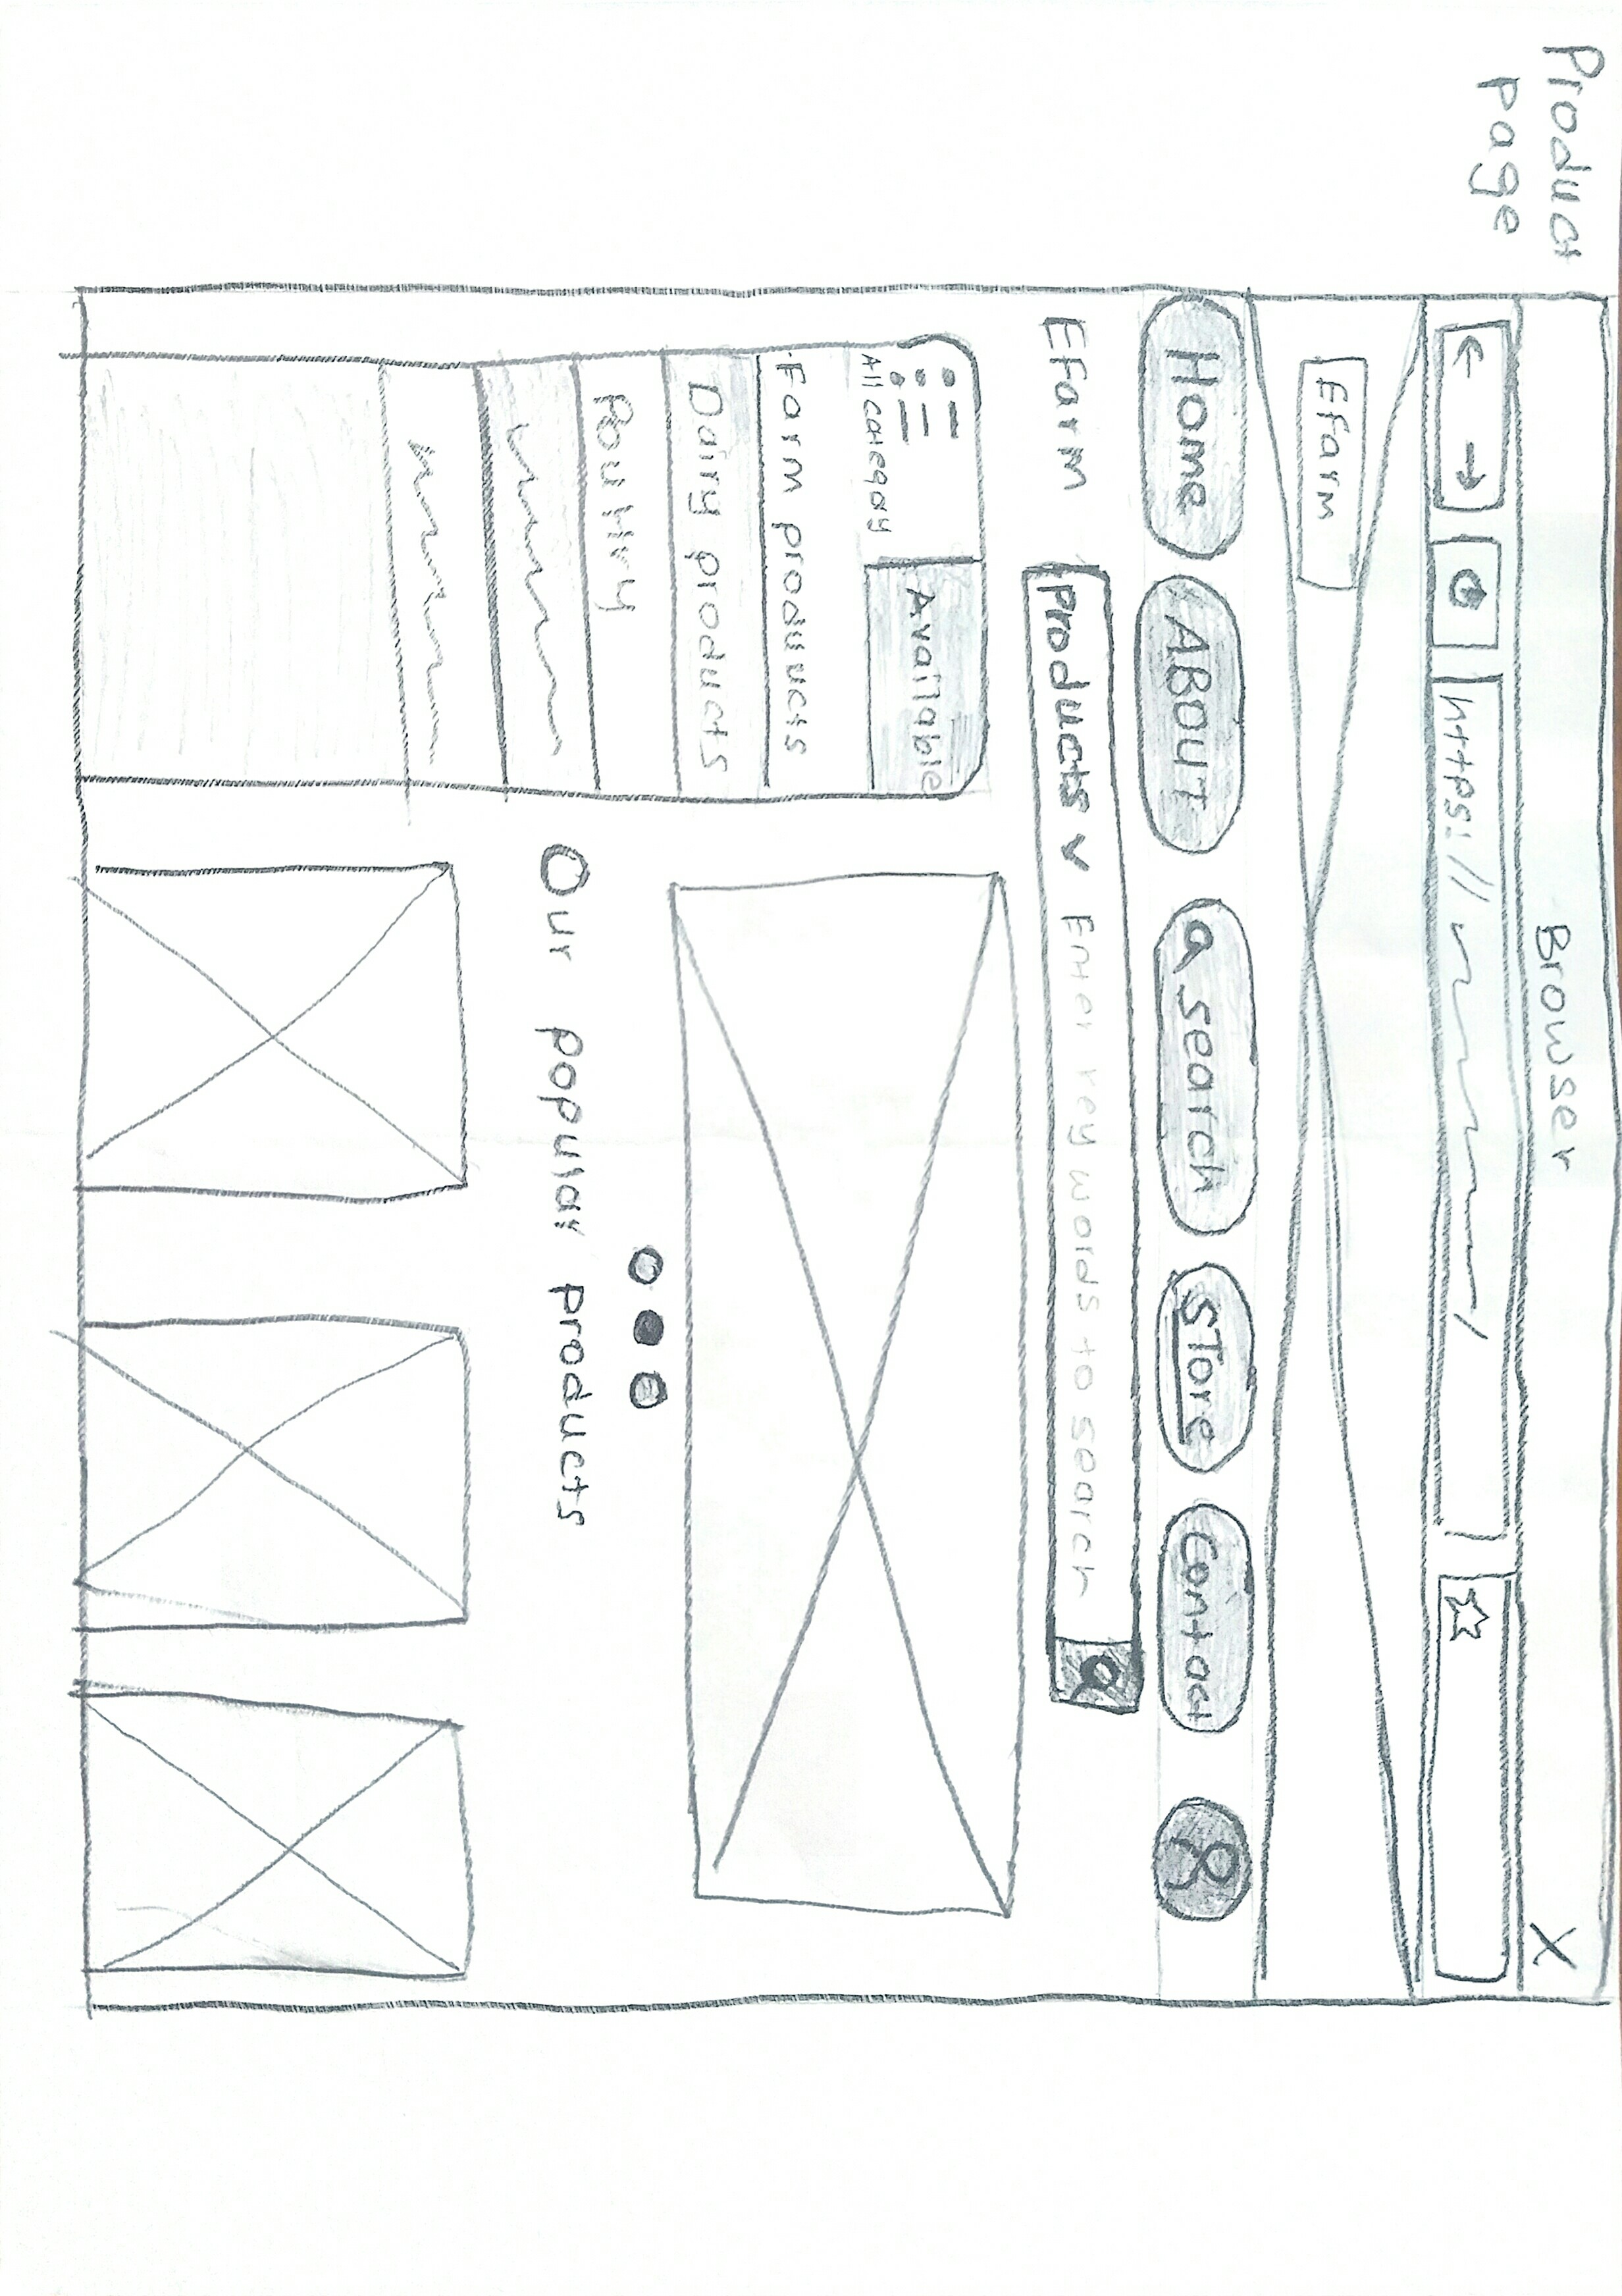 Product
page
Browser
X
https://
Efarm
Home
ABOUT
search
STore
Contact
Efarm
Products
Enter key words to search
All category
Available
Farm products
Dairy products
Poultry
Our popular products